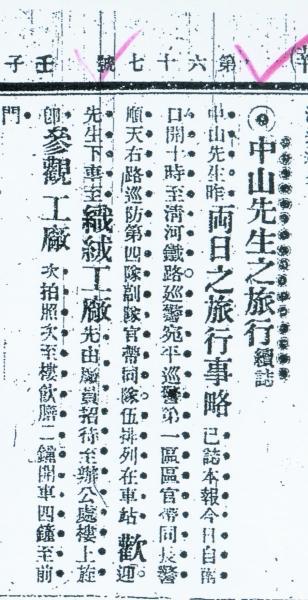 第六十七號 壬子
◉中山先生之旅行續誌
中山先生昨兩日之旅行事略已誌本報今日自南
口開十時至清河鐵路巡警宛平巡警第一區區官帶同長警
順天右路巡防第四隊副隊官帶同隊伍排列在車站歡迎。
先生下車至織絨工廠先由廠員招待至辦公處樓上旋
卽參觀工廠次拍照次至樓飲膳二鐘開車四鐘至前
門